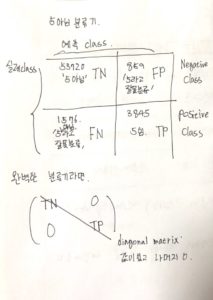 5아님 분류기.
예측 class.
실제class
53920
'5아님' TN
859
'5라고
잘못분류' FP
Negative
Class
1576
잘못분류' FN
3845
5임. TP
Positive
Class
완벽한 분류기라면.
TN 0
0 TP
diagonal matrix:
값이 있고 나머지 0.